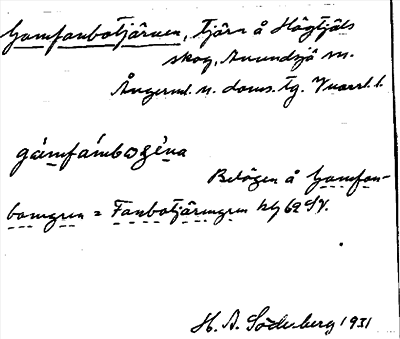 Gamfanbotjärnen, tjärn å Högtjäls
skog, Anundsjö sn.
Ångerml. n. doms. tg. Vnorrl. l.
gámfámbogéna
Belägen å Gamfan-
bomyren = Fanbotjärnmyren hly 62 SV.
H. A. Söderberg 1931